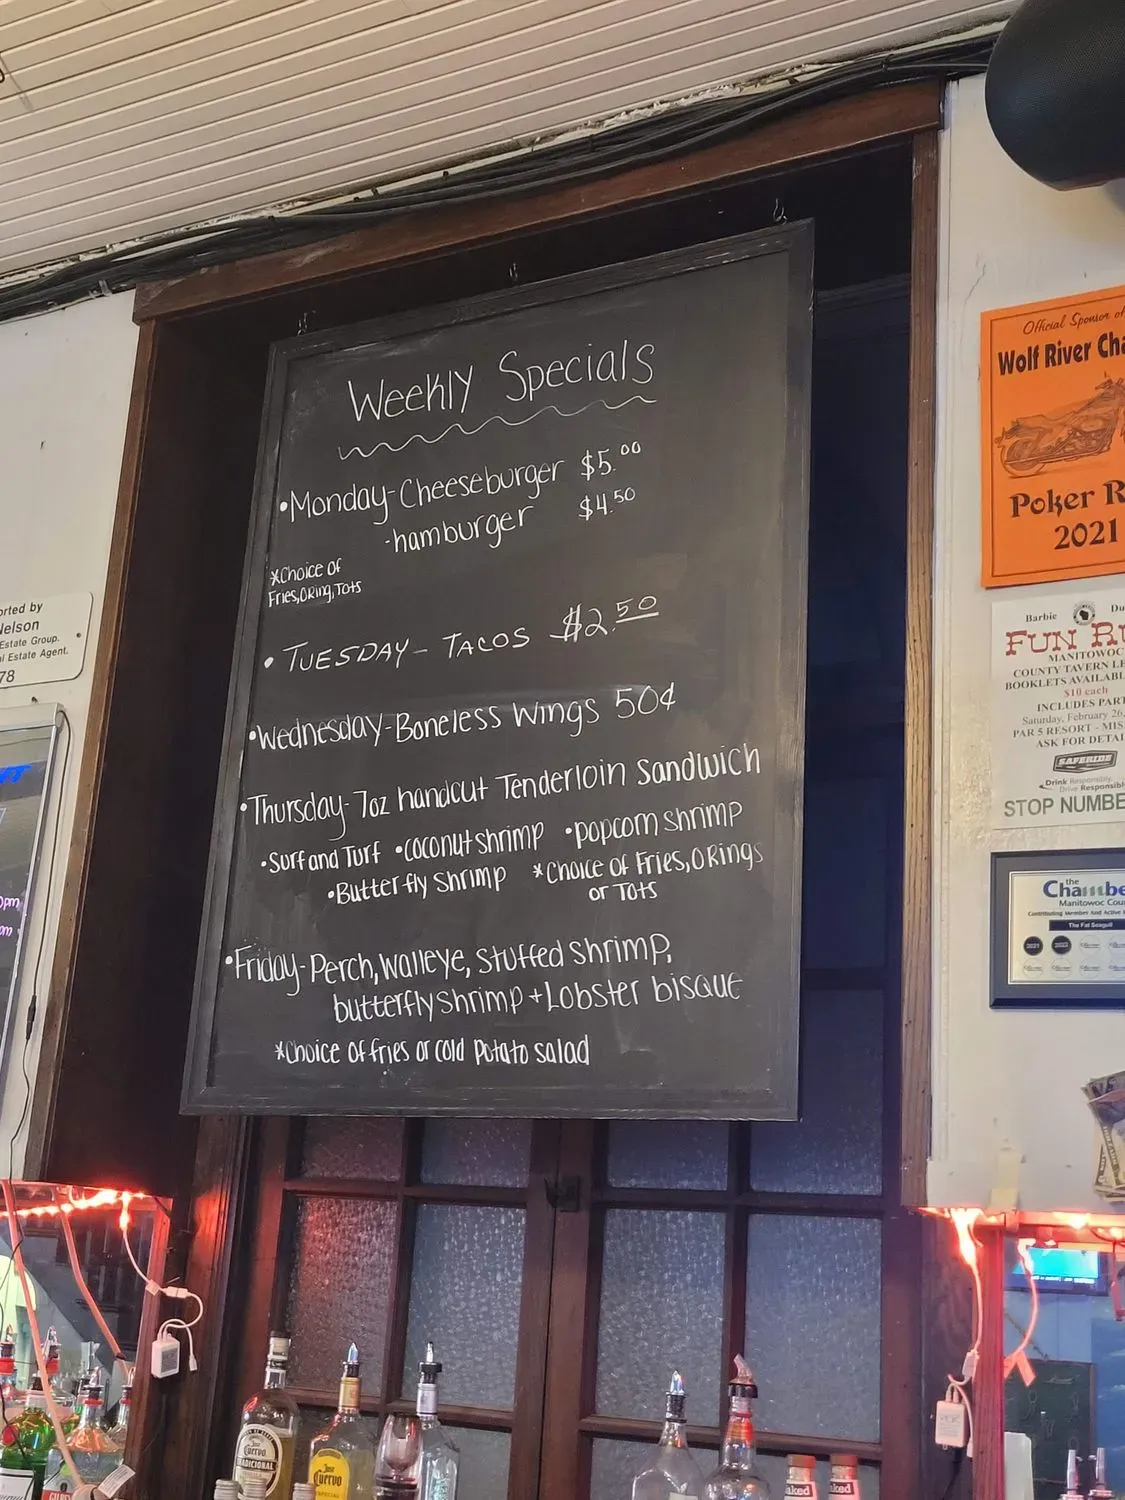 Weekly Specials
•Monday-Cheeseburger $5.00
-hamburger $4.50
*Choice of
Fries,ORing,Tots
• TUESDAY- TACOS $2.50
•Wednesday-Boneless Wings 50¢
•Thursday-7oz handcut Tenderloin Sandwich
•Surf and Turf •coconut shrimp •popcorn shrimp
•Butterfly shrimp *Choice of Fries,ORings
or Tots
•Friday-Perch,Walleye,Stuffed shrimp,
butterfly shrimp+Lobster bisque
*Choice of fries or cold potato salad
Official Sponsor of
Wolf River
Poker
2021
Barbie
FUN
MANITOWOC
COUNTY TAVERN
BOOKLETS
$10 each
INCLUDES
Saturday, February 26,
PAR 5 RESORT -
ASK FOR
SAFERIDE
Drink Responsibly.
Drive
STOP
the
Manitowoc
Contributing Member And Active
The Fat Seagull
2021 2022
by
Nelson
Estate Group.
Estate Agent.
78
Jose
Cuervo
TRADICIONAL
Jose
Cuervo
ESPECIAL